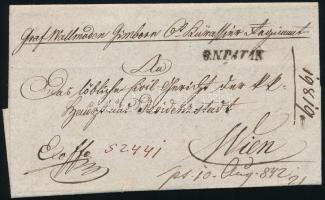 Graf Wallmoden Gimborn 6t Kurassier Regiment
S.N.PATAK
An
Das löbliche Civil Gericht der kk
Haupt und Residenzstadt
Wien
Exoffo
52441
ps. 10. Aug. 842